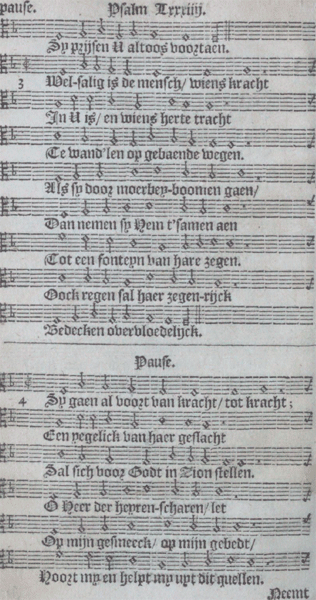 pause. Psalm Lxxxiiij.
Sy prijsen U altoos voortaen.
3 Wel-salig is de mensch/ wiens kracht
In U is/ en wiens herte tracht
Te wand'len op gebaende wegen.
Als sy door moerbey-boomen gaen/
Dan nemen sy Hem t'samen aen
Tot een fonteyn van hare zegen.
Oock regen sal haer zegen-rijck
Bedecken overvloedelijck.
Pause.
4 Sy gaen al voort van kracht/ tot kracht;
Een yegelick van haer geslacht
Sal sich voor Godt in Zion stellen.
O Heer der heyren-scharen/ let
Op mijn gesmeeck/ op mijn gebedt/
Hoort my en helpt my uyt dit quellen.
Neemt